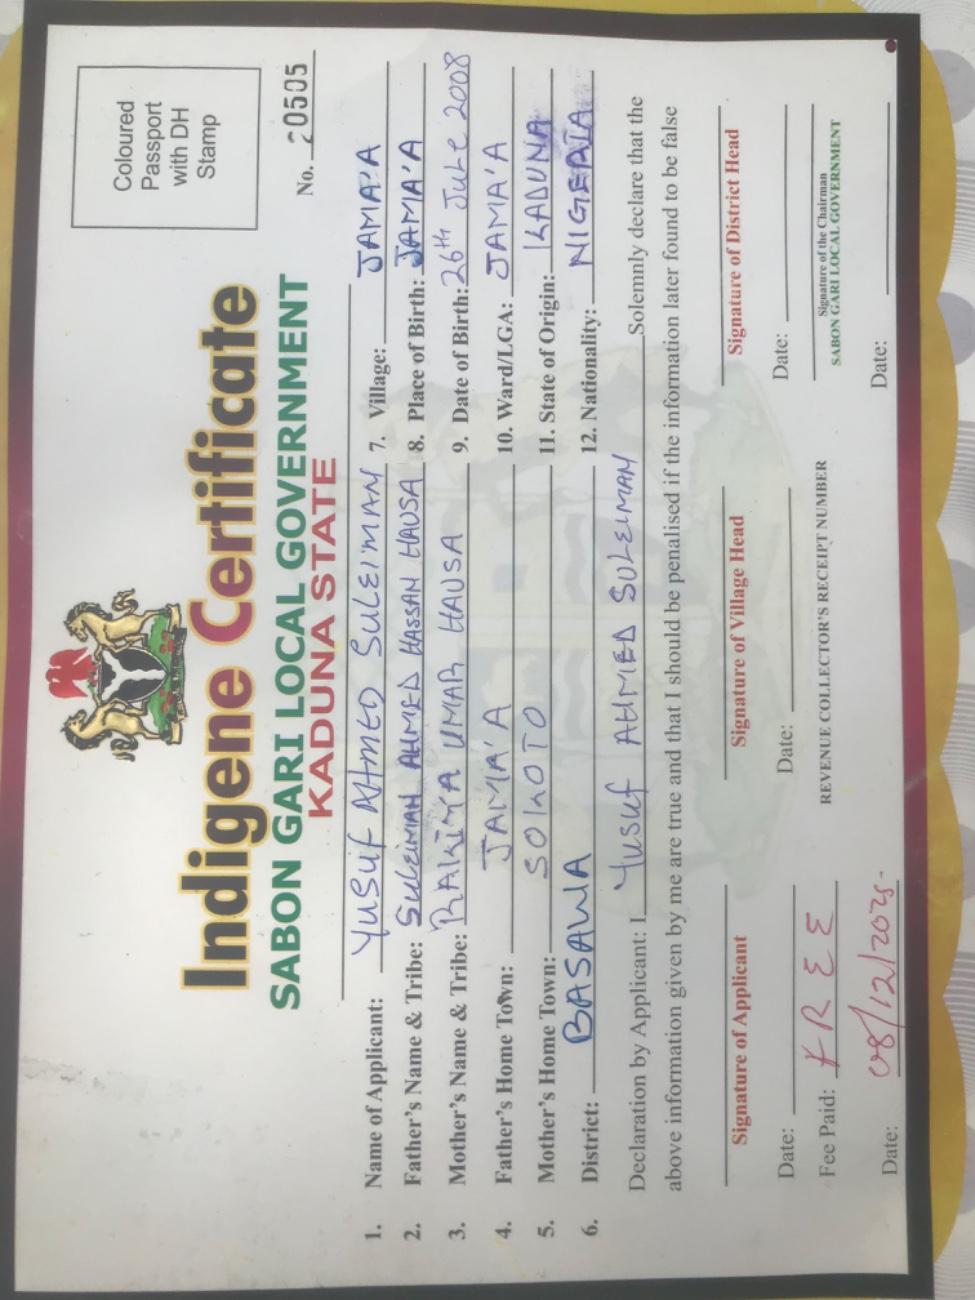 Coloured
Passport
with DH
Stamp
Indigene Certificate
SABON GARI LOCAL GOVERNMENT
KADUNA STATE
No. 20505
1. Name of Applicant: YUSUF AHMED SULEIMAN
2. Father's Name & Tribe: SULEIMAN AHMED HASSAN HAUSA
3. Mother's Name & Tribe: RAKIMA UMAR HAUSA
4. Father's Home Town: JAMA'A
5. Mother's Home Town: SOKOTO
6. District: BASAWA
7. Village: JAMA'A
8. Place of Birth: JAMA'A
9. Date of Birth: 26th JULE 2008
10. Ward/LGA: JAMA'A
11. State of Origin: KADUNA
12. Nationality: NIGERIA
Declaration by Applicant: I Yusuf AHMED SULEIMAN Solemnly declare that the
above information given by me are true and that I should be penalised if the information later found to be false
Signature of Applicant
Date:
Signature of Village Head
Date:
Signature of District Head
Date:
Fee Paid: FREE
REVENUE COLLECTOR'S RECEIPT NUMBER
Signature of the Chairman
SABON GARI LOCAL GOVERNMENT
Date: 08/12/2025
Date: